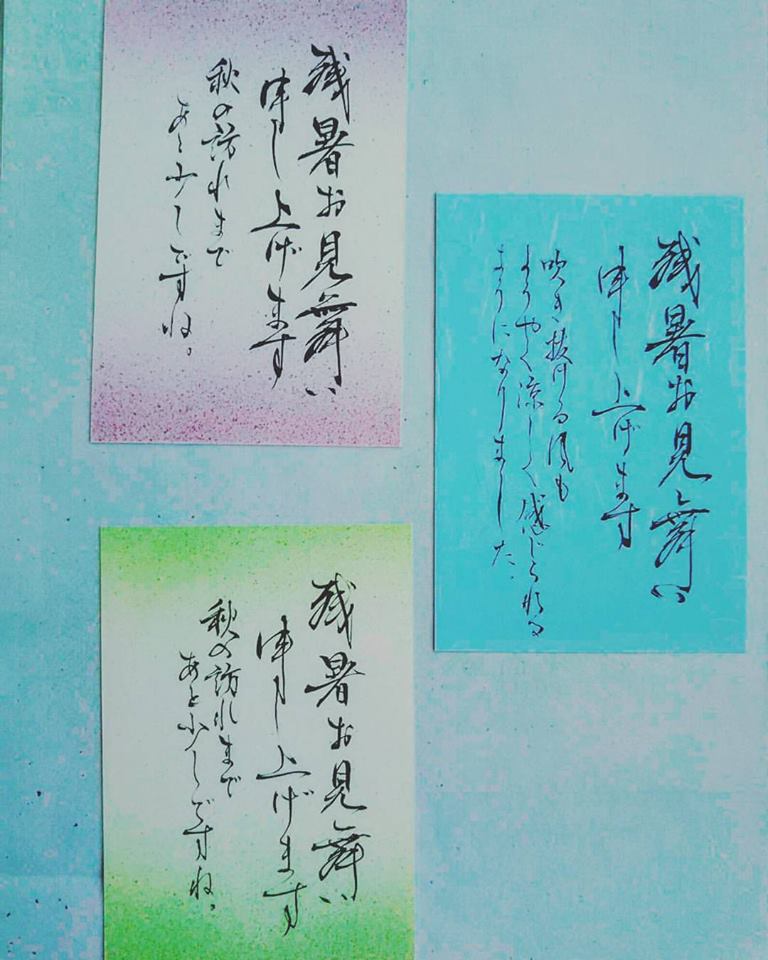 残暑お見舞い
申し上げます
秋の訪れまで
あと少しですね。
残暑お見舞い
申し上げます
吹き抜ける風も
ようやく涼しく感じられる
ようになりました。
残暑お見舞い
申し上げます
秋の訪れまで
あと少しですね。